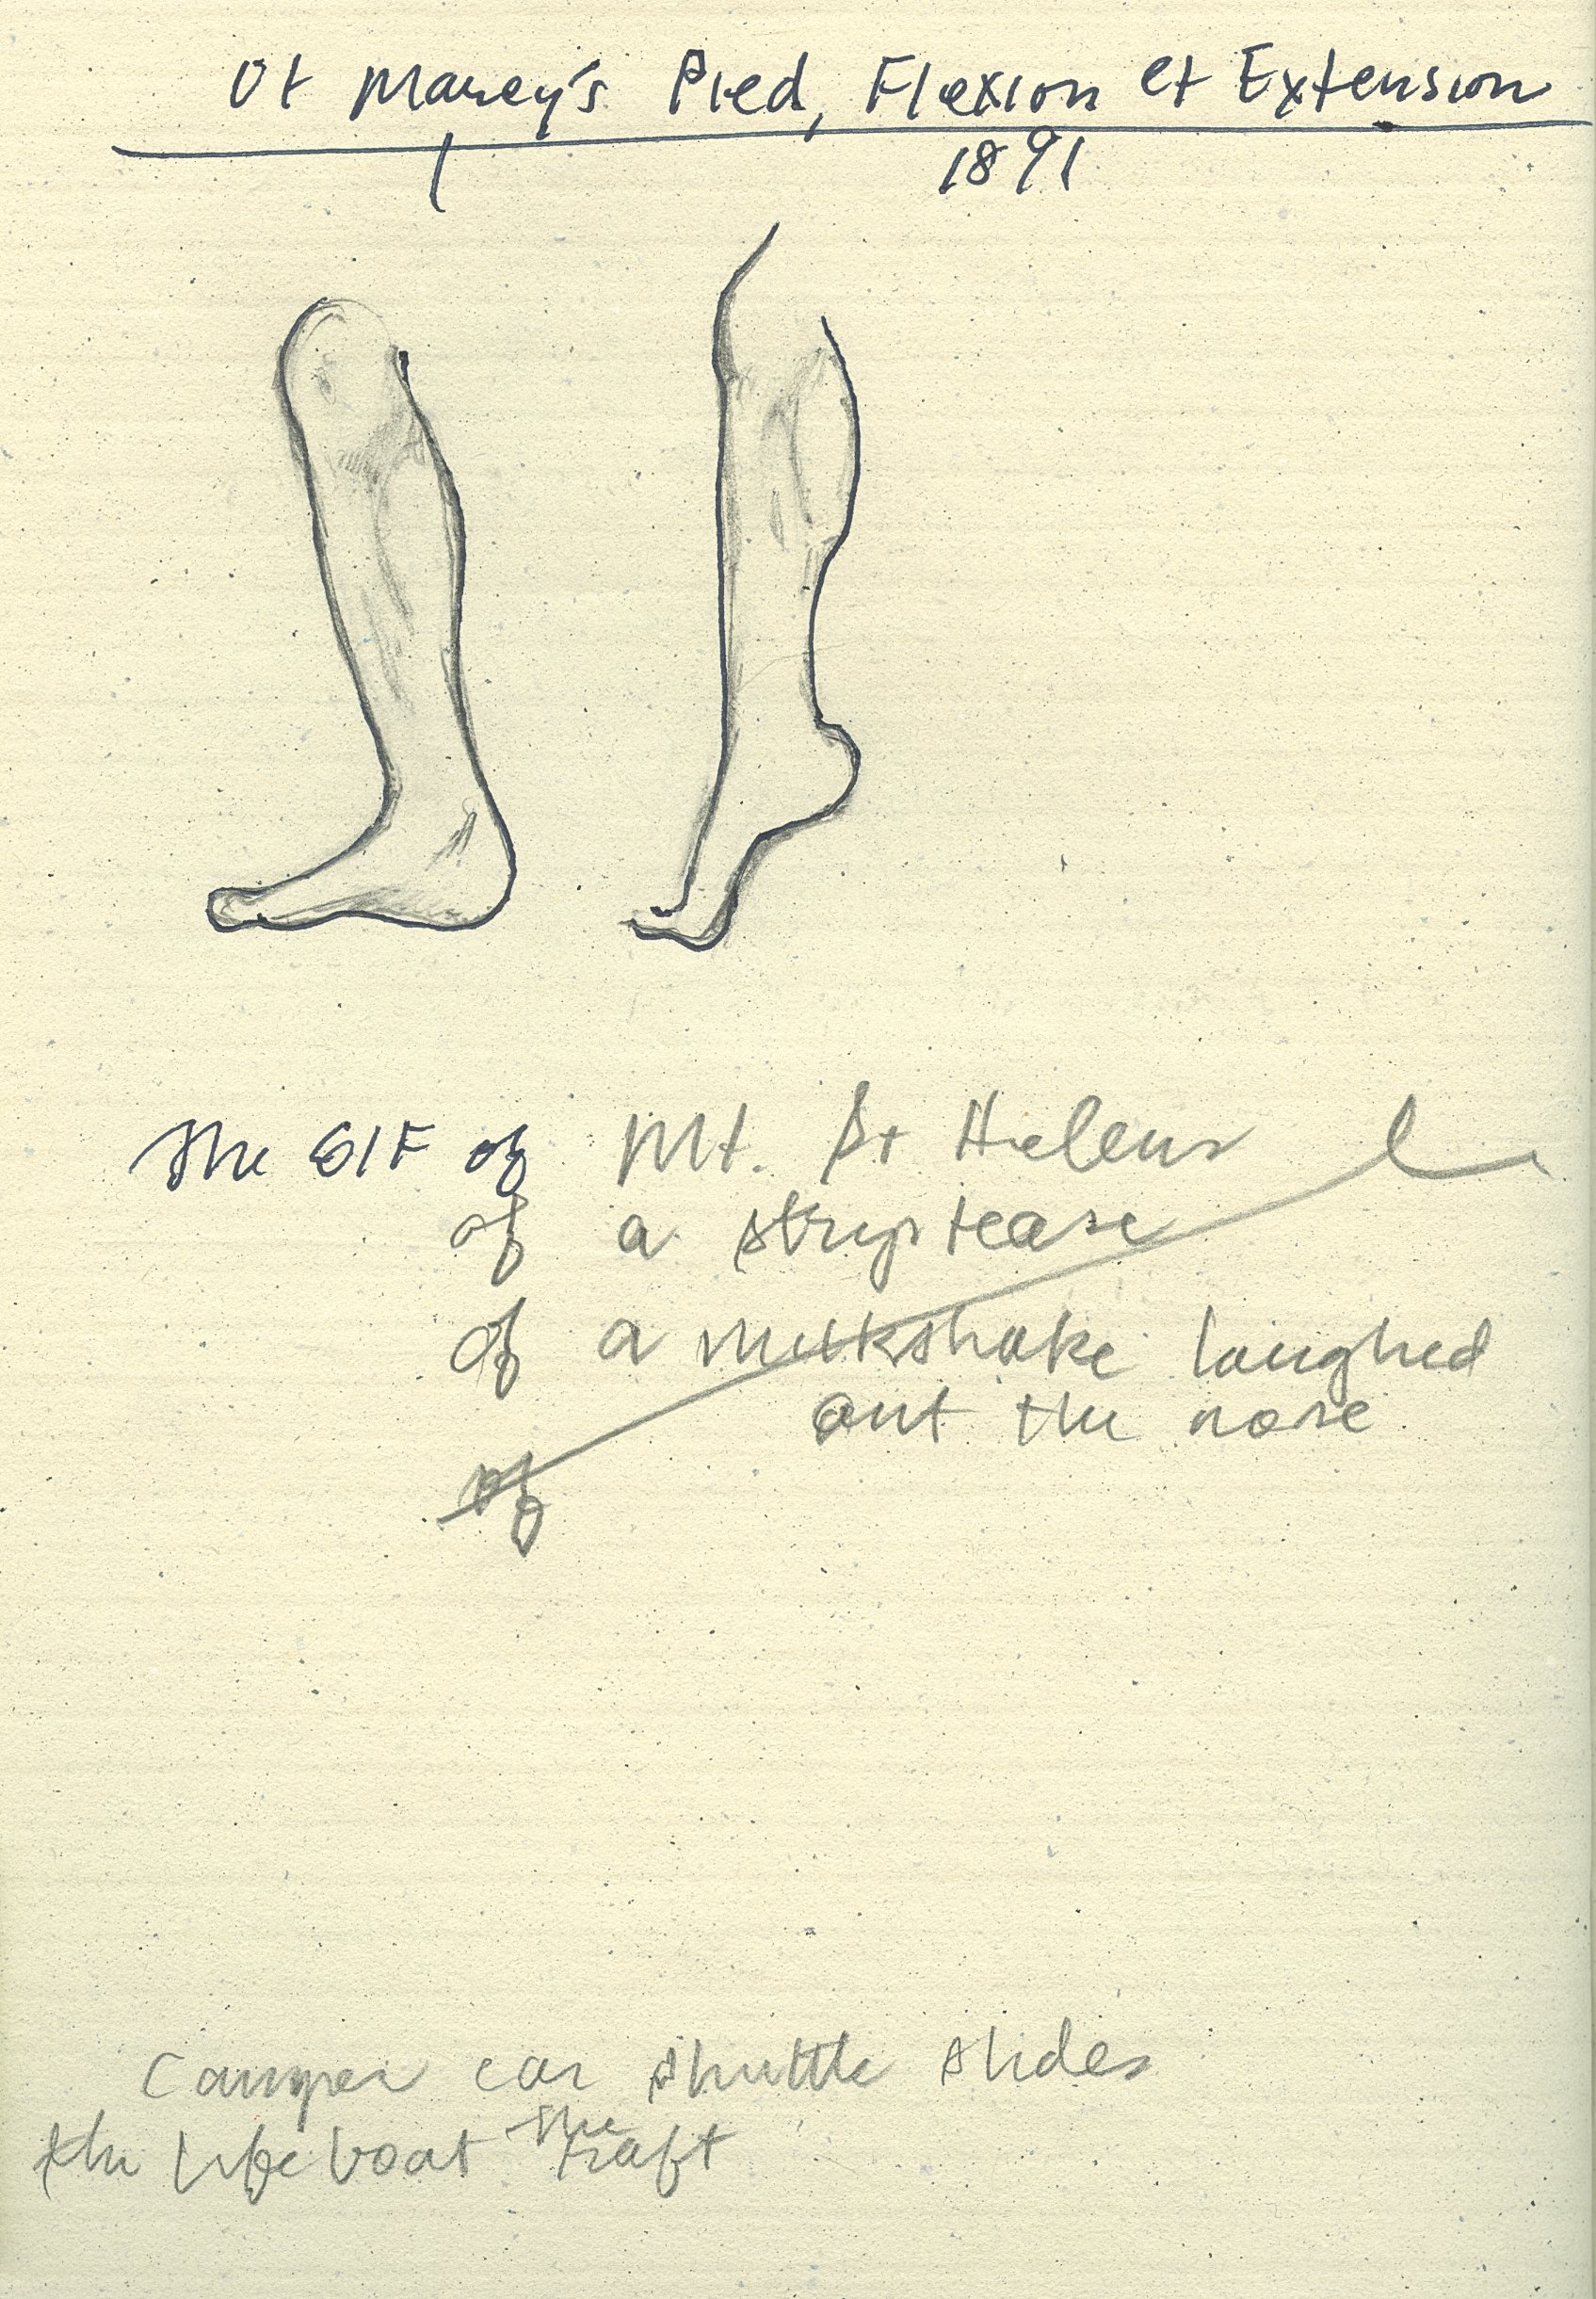 Of Marey's Pied, Flexion et Extension
1891
The GIF of Mt. St Helens
of a striptease
of a milkshake laughed
out the nose
of
Camper car shuttle slides
the lifeboat the raft